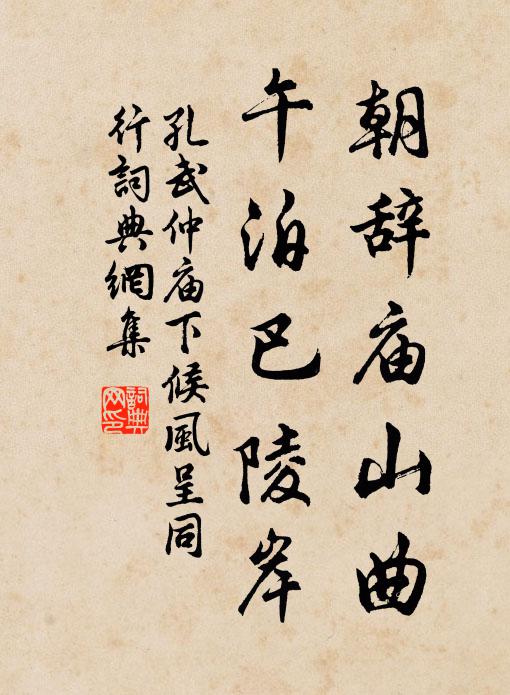 朝辞庙山曲
午泊巴陵岸
孔武仲庙下候風呈同
行詞典網集
詞典
网印